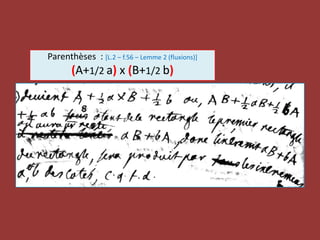 Parenthèses : [L.2 – f.56 – Lemme 2 (fluxions)]
(A+1/2 a) x (B+1/2 b)
devient A + ½ a X B + ½ b ou, AB + ½ aB + ½ bA
8
tous otant de le rectangle le premier rectangle
il aura pour reste aB + bA, donc l'increment aB + bA
du rectangle, sera produit par tous les incremens
a, b des cotés, C. q. f. d.